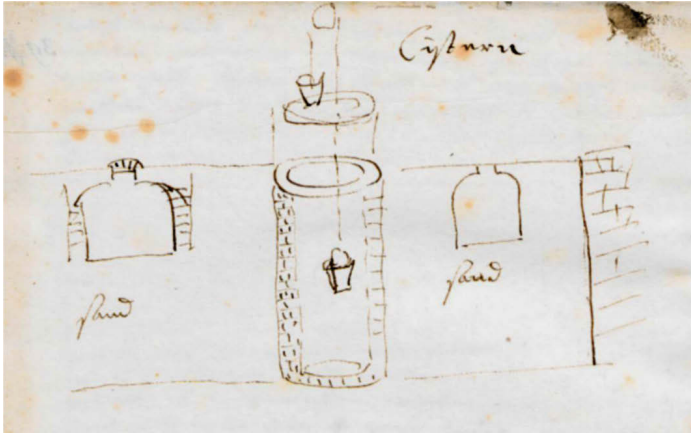 Cistern
sand
sand